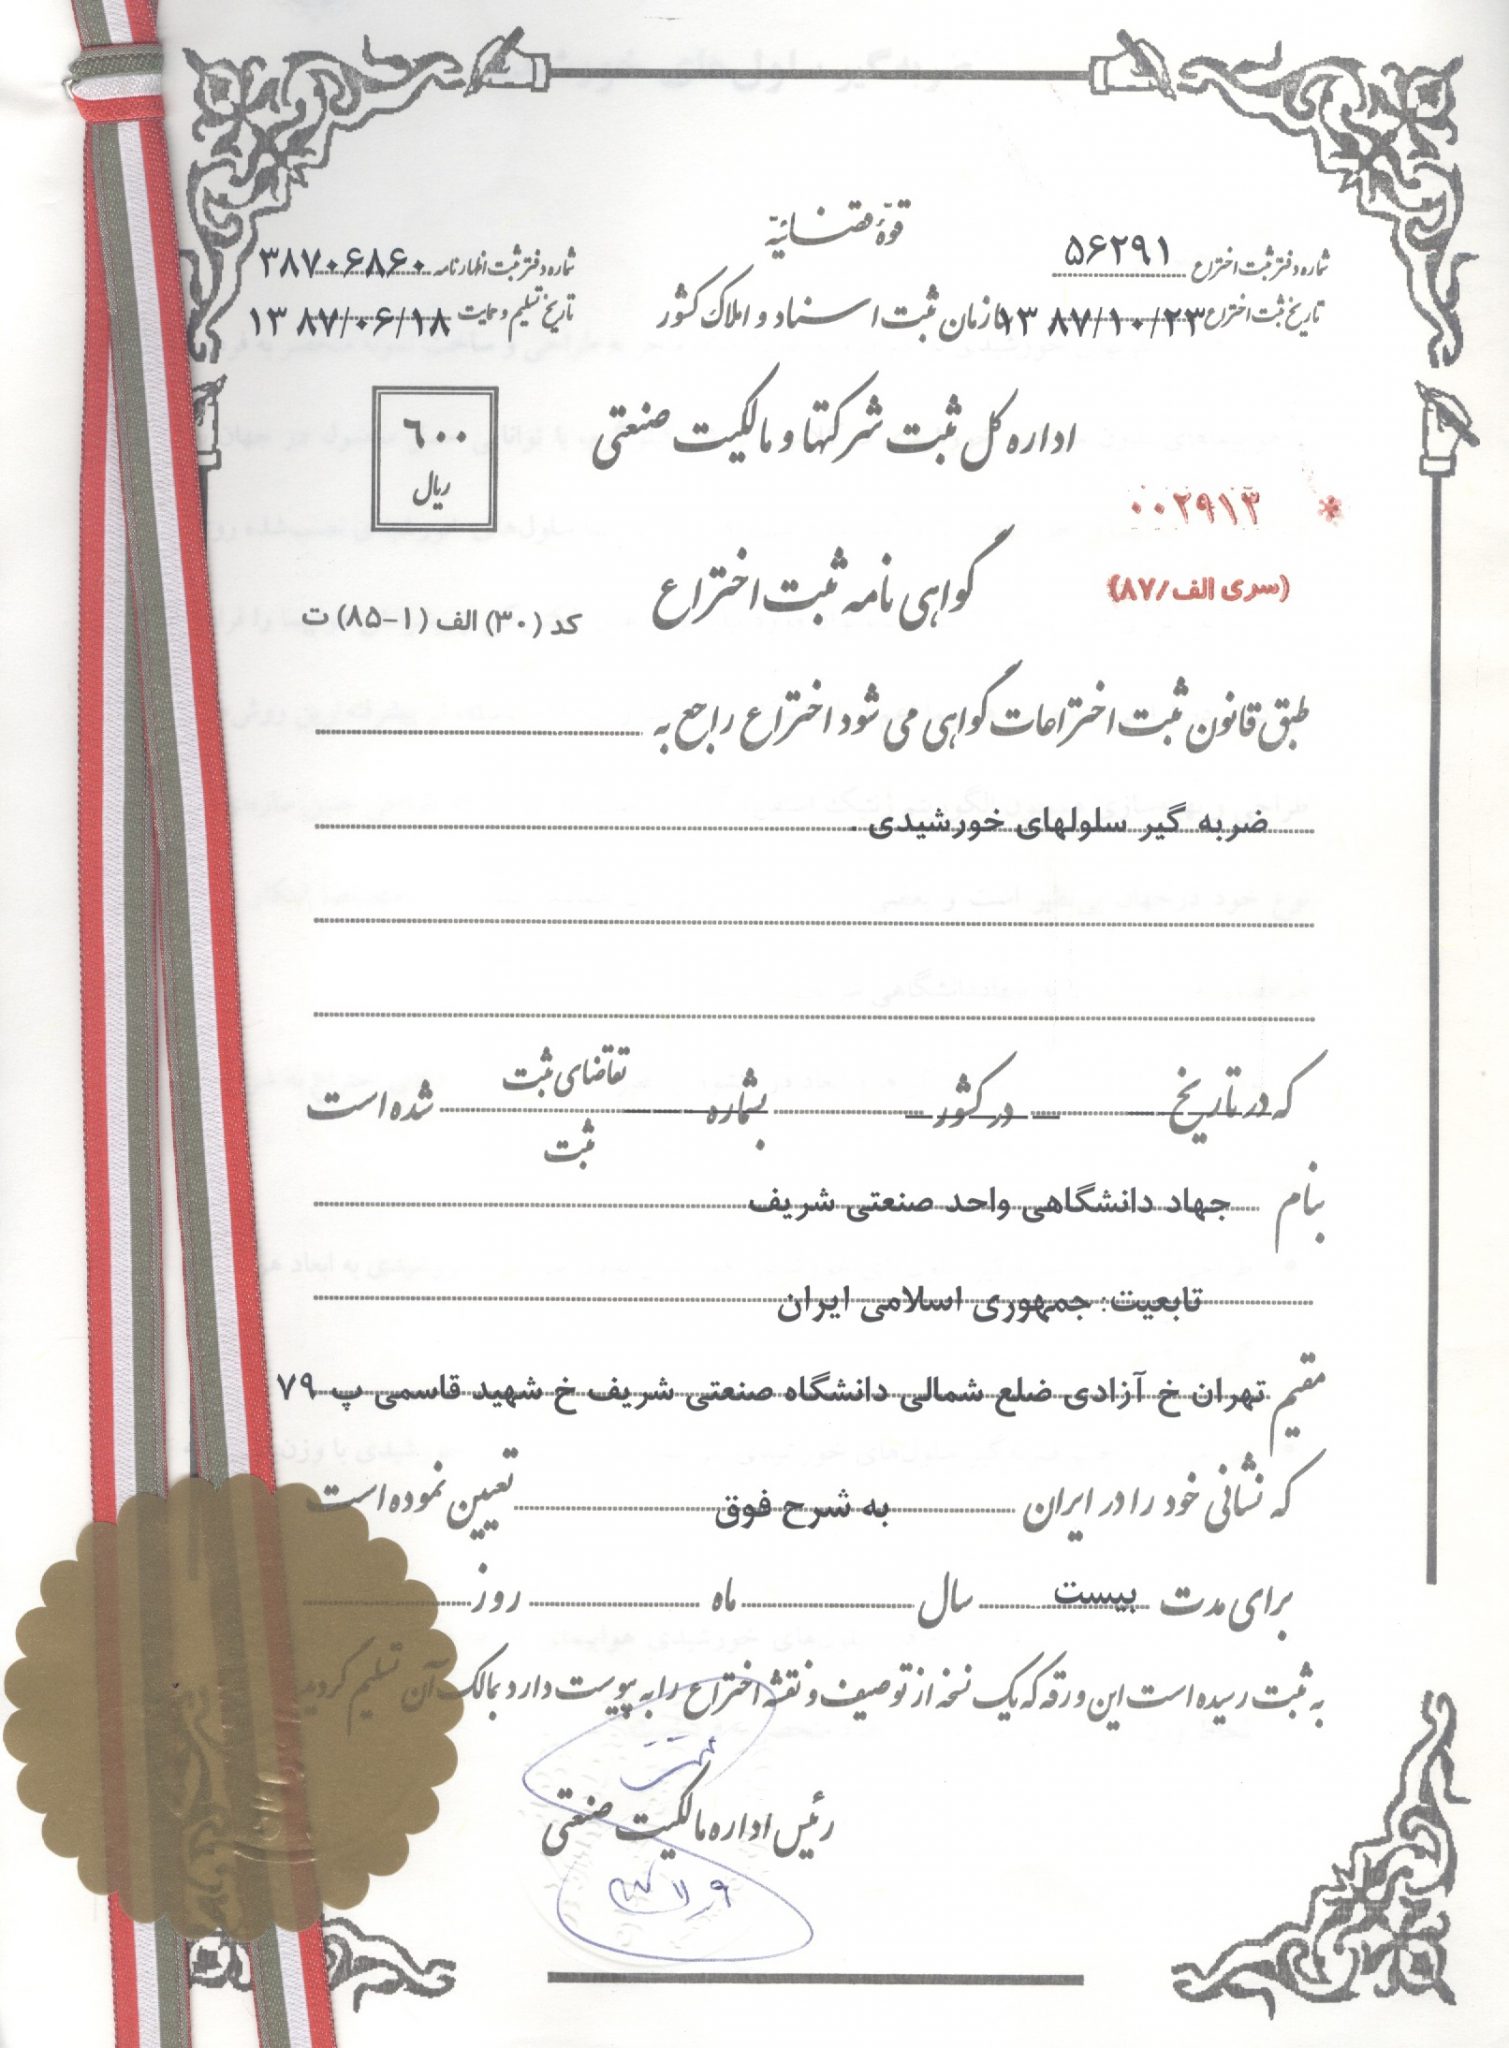 قوهٔ قضائیه
شماره دفتر ثبت اختراع ۵۶۲۹۱
شماره دفتر ثبت اظهارنامه ۳۸۷۰۶۸۶۰
سازمان ثبت اسناد و املاک کشور
تاریخ ثبت اختراع ۱۳۸۷/۱۰/۲۳
تاریخ تسلیم و حمایت ۱۳۸۷/۰۶/۱۸
اداره کل ثبت شرکتها و مالکیت صنعتی
۶۰۰
ریال
* ۰۰۲۹۱۳
(سری الف/۸۷)
گواهی نامه ثبت اختراع
کد (۳۰) الف (۱-۸۵) ت
طبق قانون ثبت اختراعات گواهی می شود اختراع راجع به
ضربه گیر سلولهای خورشیدی .
که در تاریخ در کشور بشماره تقاضای ثبت شده است
ثبت
بنام جهاد دانشگاهی واحد صنعتی شریف
تابعیت: جمهوری اسلامی ایران
مقیم تهران خ آزادی ضلع شمالی دانشگاه صنعتی شریف خ شهید قاسمی پ ۷۹
که نشانی خود را در ایران به شرح فوق تعیین نموده است
برای مدت بیست سال ماه روز
به ثبت رسیده است این ورقه که یک نسخه از توصیف و نقشه اختراع را به پیوست دارد بمالک آن تسلیم گردید
رئیس اداره مالکیت صنعتی